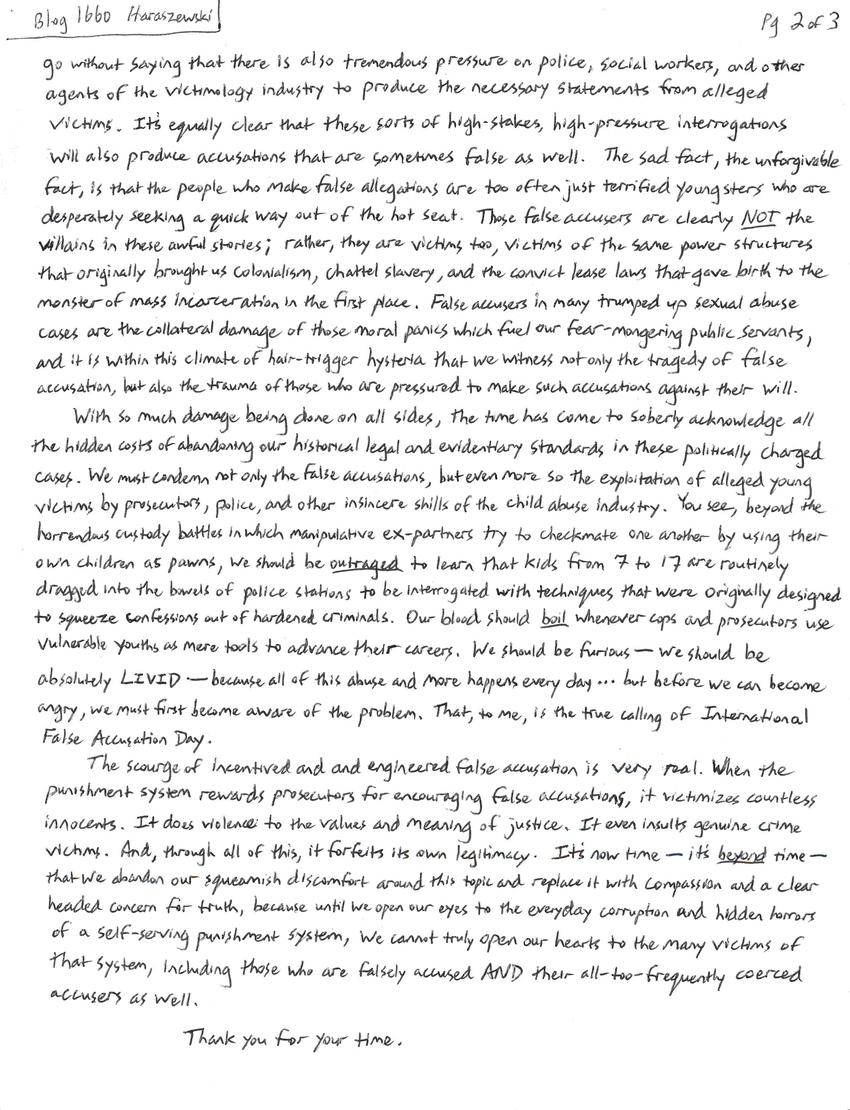 Blog 1660 Haraszewski
Pg 2 of 3
go without saying that there is also tremendous pressure on police, social workers, and other
agents of the victimology industry to produce the necessary statements from alleged
victims. It's equally clear that these sorts of high-stakes, high-pressure interrogations
will also produce accusations that are sometimes false as well. The sad fact, the unforgivable
fact, is that the people who make false allegations are too often just terrified youngsters who are
desperately seeking a quick way out of the hot seat. Those false accusers are clearly NOT the
villains in these awful stories; rather, they are victims too, victims of the same power structures
that originally brought us colonialism, chattel slavery, and the convict lease laws that gave birth to the
monster of mass incarceration in the first place. False accusers in many trumped up sexual abuse
cases are the collateral damage of those moral panics which fuel our fear-mongering public servants,
and it is within this climate of hair-trigger hysteria that we witness not only the tragedy of false
accusation, but also the trauma of those who are pressured to make such accusations against their will.
With so much damage being done on all sides, the time has come to soberly acknowledge all
the hidden costs of abandoning our historical legal and evidentiary standards in these politically charged
cases. We must condemn not only the false accusations, but even more so the exploitation of alleged young
victims by prosecutors, police, and other insincere shills of the child abuse industry. You see, beyond the
horrendous custody battles in which manipulative ex-partners try to checkmate one another by using their
own children as pawns, we should be outraged to learn that kids from 7 to 17 are routinely
dragged into the bowels of police stations to be interrogated with techniques that were originally designed
to squeeze confessions out of hardened criminals. Our blood should boil whenever cops and prosecutors use
vulnerable youths as mere tools to advance their careers. We should be furious — we should be
absolutely LIVID — because all of this abuse and more happens every day... but before we can become
angry, we must first become aware of the problem. That, to me, is the true calling of International
False Accusation Day.
The scourge of incentived and and engineered false accusation is very real. When the
punishment system rewards prosecutors for encouraging false accusations, it victimizes countless
innocents. It does violence to the values and meaning of justice. It even insults genuine crime
victims. And, through all of this, it forfeits its own legitimacy. It's now time — it's beyond time —
that we abandon our squeamish discomfort around this topic and replace it with compassion and a clear
headed concern for truth, because until we open our eyes to the everyday corruption and hidden horrors
of a self-serving punishment system, we cannot truly open our hearts to the many victims of
that system, including those who are falsely accused AND their all-too-frequently coerced
accusers as well.
Thank you for your time.